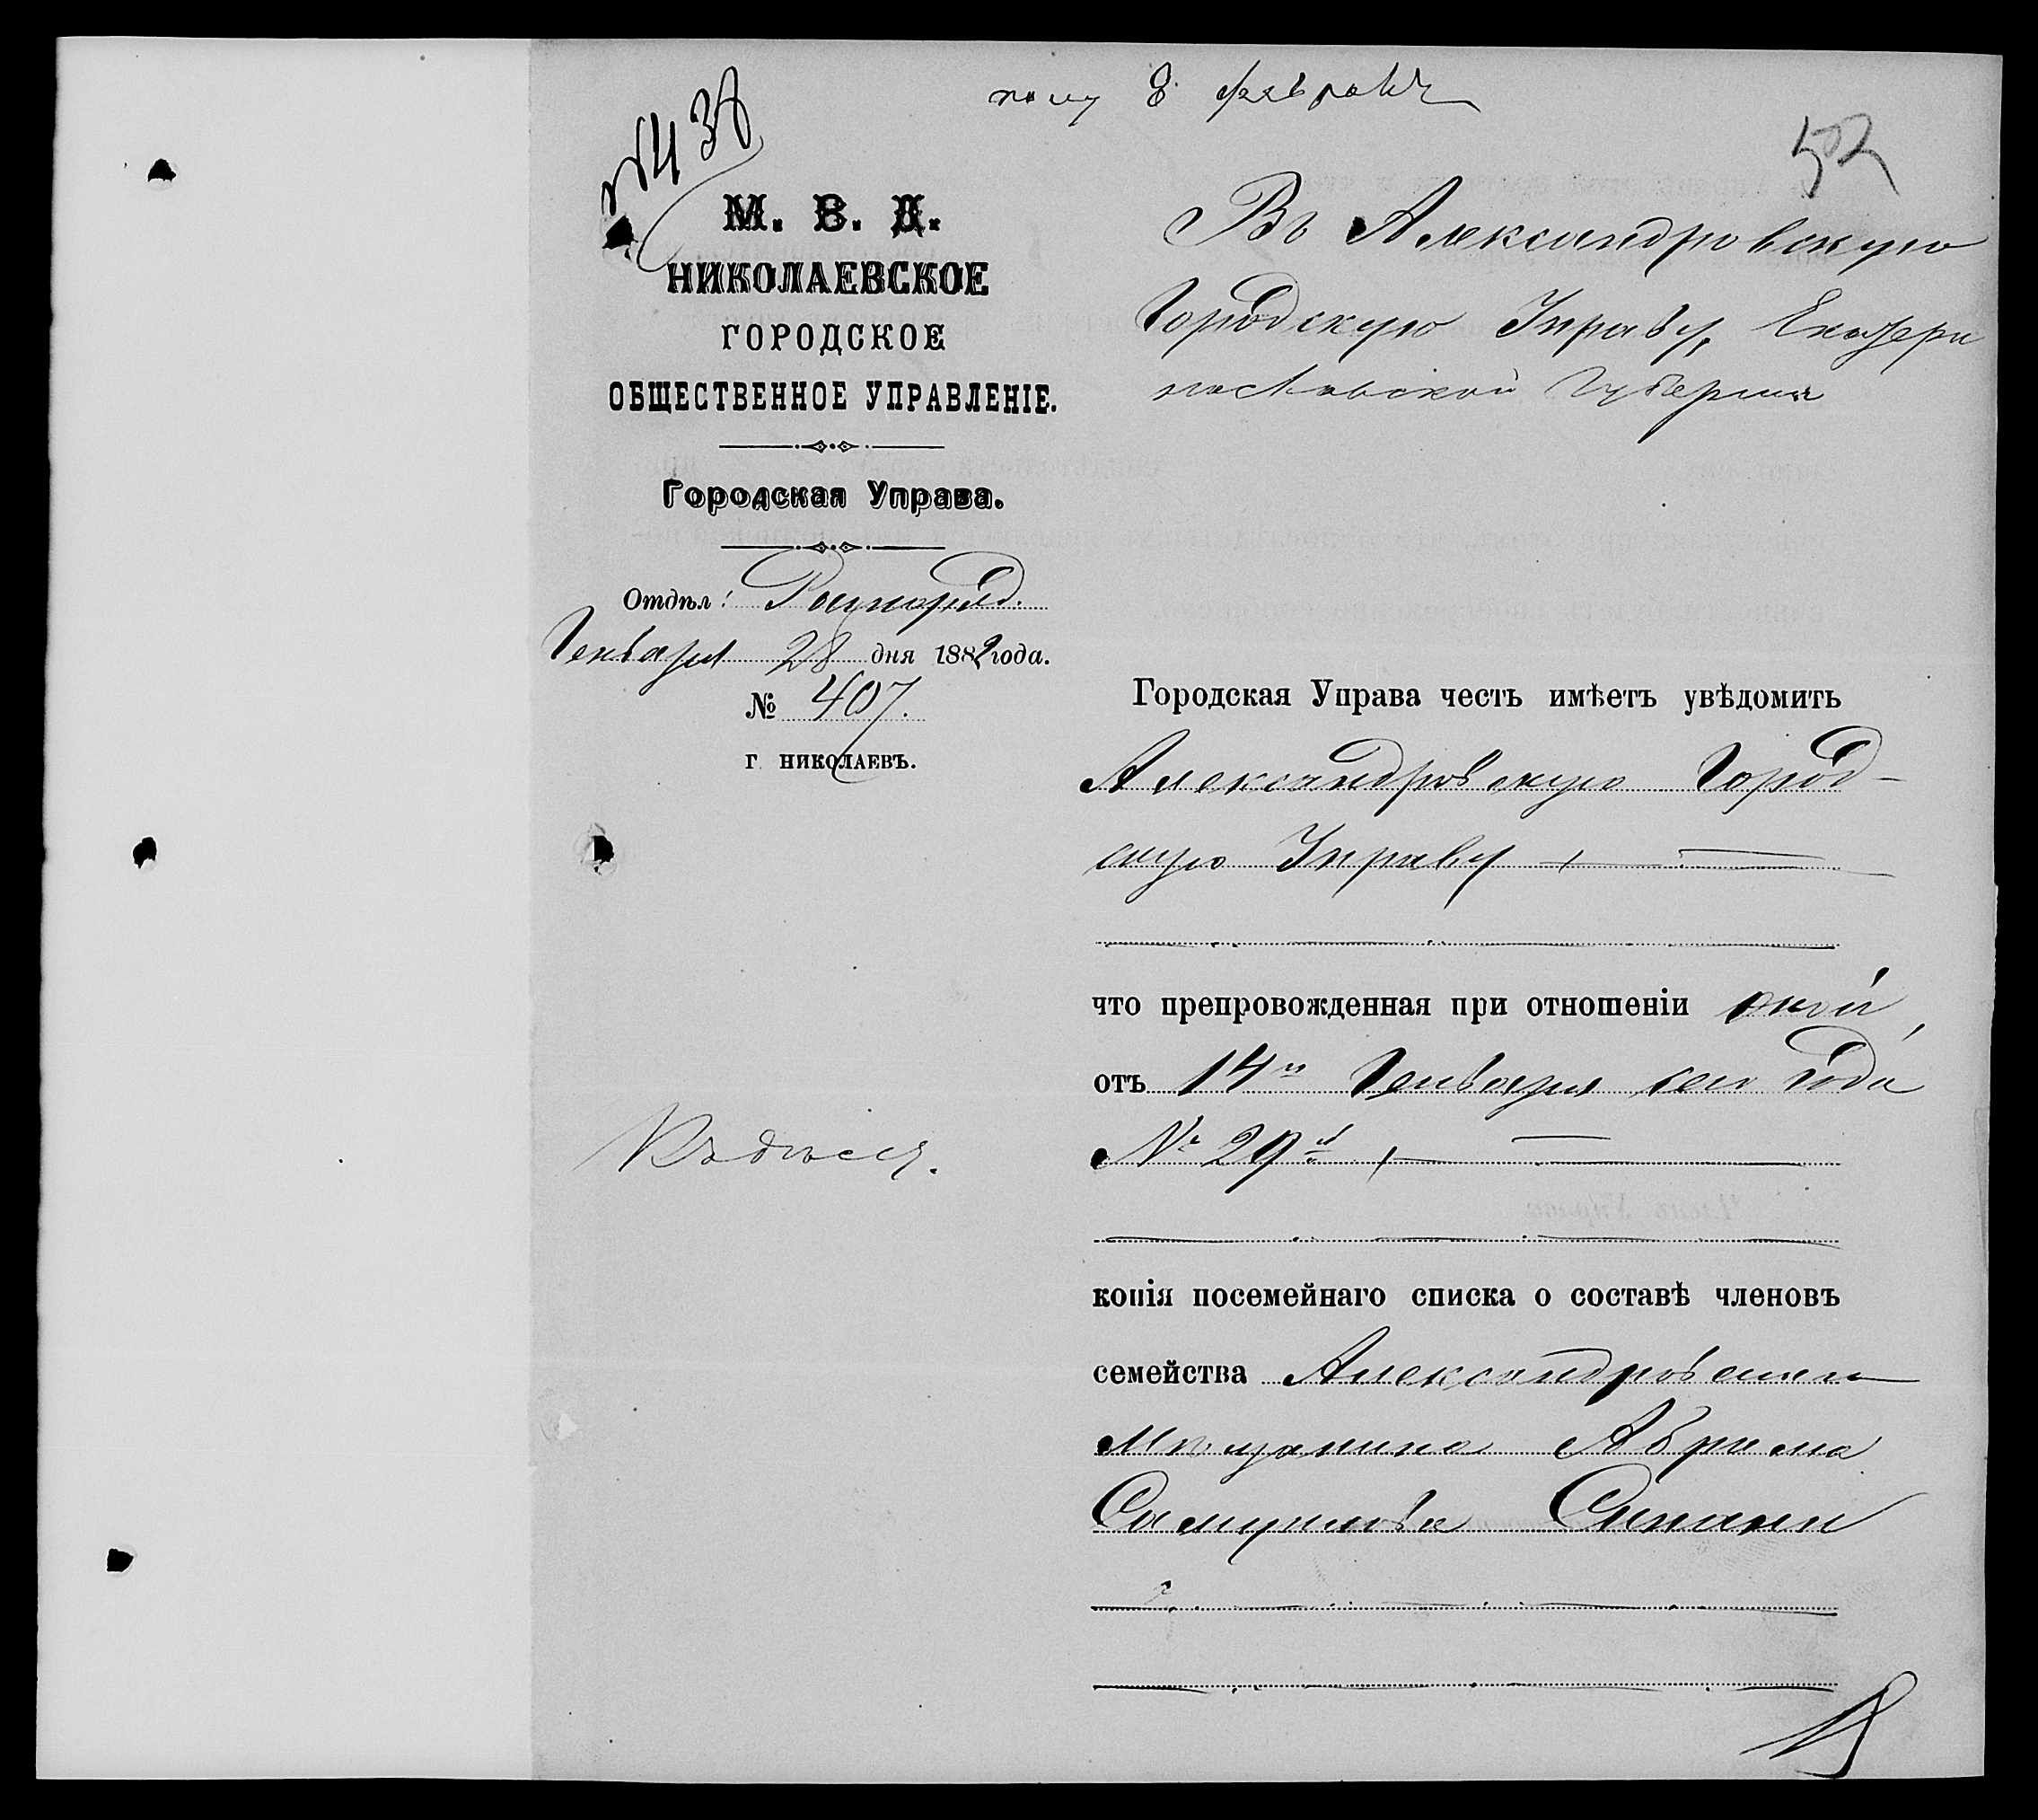 пол 8 февраля
№ 438
52
М. В. Д.
НИКОЛАЕВСКОЕ
ГОРОДСКОЕ
ОБЩЕСТВЕННОЕ УПРАВЛЕНІЕ.
Городская Управа.
Отдѣл: Распоряд.
Генваря 28 дня 1882 года.
№ 407.
г. НИКОЛАЕВЪ.
Въ Александровскую
Городскую Управу, Екатери
нославской Губерніи
Городская Управа честь имѣетъ увѣдомить
Александровскую Город-
скую Управу
что препровожденная при отношеніи оной
отъ 14го Генваря сего года
№ 29й
копія посемейнаго списка о составѣ членовъ
семейства Александровскаго
мѣщанина Абрама
Самуилова